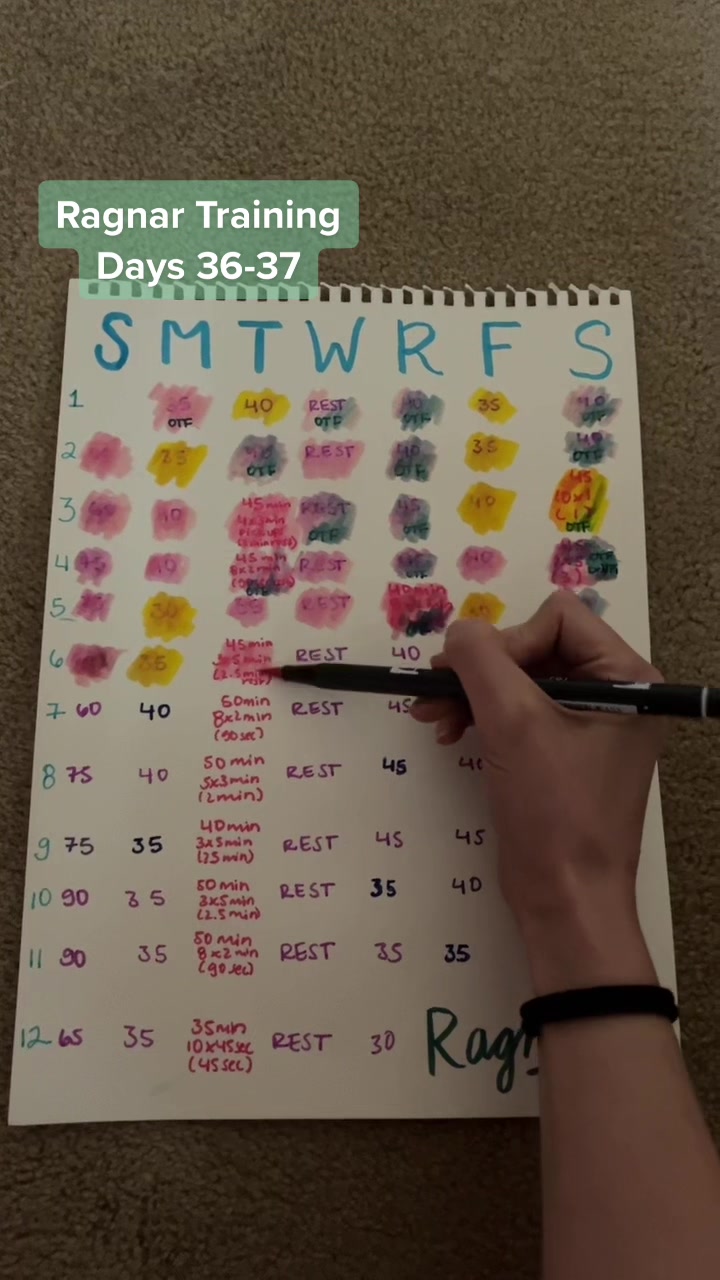 Ragnar Training
Days 36-37
S M T W R F S
1 35 40 REST 35
OTF OTF OTF OTF
2 35 40 REST 40 35 40
OTF OTF OTF
3 40 45min REST 45 40 45
4x3min 10x1
OTF OTF OTF
4 75 40 45min REST 40
8x2min
5 30 35 REST
6 35 45min REST 40
3x5min
(2.5min
rest)
7 60 40 50min REST 45
8x2min
(90sec)
8 75 40 50min REST 45
5x3min
(2min)
9 75 35 40min REST 45 45
3x5min
(2.5min)
10 90 35 50min REST 35 40
3x5min
(2.5min)
11 90 35 50min REST 35 35
8x2min
(90sec)
12 65 35 35min REST 30
10x45sec
(45sec)